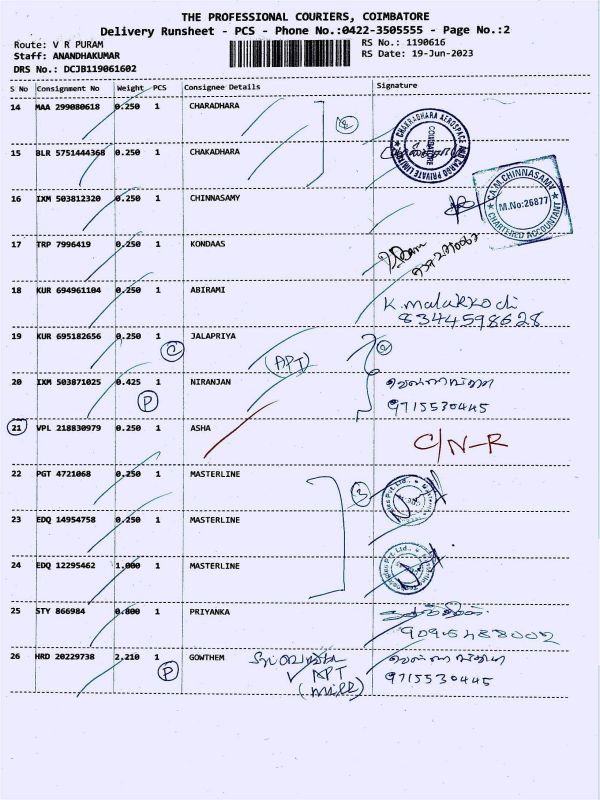 THE PROFESSIONAL COURIERS, COIMBATORE
Delivery Runsheet - PCS - Phone No.:0422-3505555 - Page No.:2
Route: V R PURAM
RS No.: 1190616
Staff: ANANDHAKUMAR
RS Date: 19-Jun-2023
DRS No.: DCJB119061602
S No Consignment No Weight PCS Consignee Details Signature
14 MAA 299080618 0.250 1 CHARADHARA
2
CHAKRADHARA AEROSPACE AND CARGO PRIVATE LIMITED
COIMBATORE
15 BLR 5751444368 0.250 1 CHAKADHARA
16 IXM 503812320 0.250 1 CHINNASAMY
CA.M.CHINNASAMY
M.No:26877
CHARTERED ACCOUNTANT
17 TRP 7996419 0.250 1 KONDAAS
18 KUR 694961104 0.250 1 ABIRAMI
K.malarkkodi
8344598628
19 KUR 695182656 0.250 1 JALAPRIYA
C
2
(APT)
20 IXM 503871025 0.425 1 NIRANJAN
P
9715530445
21 VPL 218830979 0.250 1 ASHA
C/N-R
22 PGT 4721068 0.250 1 MASTERLINE
3
23 EDQ 14954758 0.250 1 MASTERLINE
24 EDQ 12295462 1.000 1 MASTERLINE
25 STY 866984 0.800 1 PRIYANKA
9095488002
26 HRD 20229738 2.210 1 GOWTHEM
P
APT
9715530445